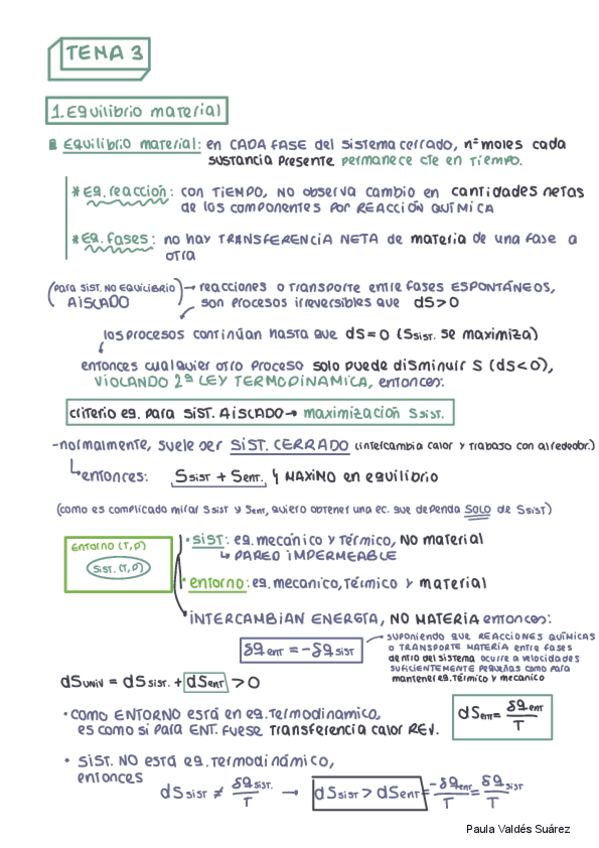 TEMA 3
1. Equilibrio material
Equilibrio material: en CADA FASE del sistema cerrado, nº moles cada
sustancia presente permanece cte en tiempo.
* Eq. reacción: con TIEMPO, NO observa cambio en cantidades netas
de los componentes por REACCIÓN QUÍMICA
* Eq. fases: no hay TRANSFERENCIA NETA de materia de una fase a
otra
(para SIST. NO EQUILIBRIO AISLADO) → reacciones o transporte entre fases ESPONTÁNEOS,
son procesos irreversibles que dS>0
los procesos continúan hasta que dS=0 (Ssist. se maximiza)
entonces cualquier otro proceso solo puede disminuir S (dS<0),
VIOLANDO 2ª LEY TERMODINAMICA, entonces:
criterio eq. para SIST. AISLADO → maximización Ssist.
-normalmente, suele ser SIST. CERRADO (intercambia calor y trabajo con alrededor.)
entonces: Ssist + Sent. y MAXIMO en equilibrio
(como es complicado mirar Ssist y Sent, quiero obtener una ec. que dependa SOLO de Ssist)
Entorno (T, P)
Sist. (T, P)
• sist: eq. mecánico y térmico, NO material
↳ PARED IMPERMEABLE
• entorno: eq. mecanico, térmico y material
INTERCAMBIAN ENERGÍA, NO MATERIA entonces:
δq ent = -δq sist
suponiendo que REACCIONES QUÍMICAS
o TRANSPORTE MATERIA entre fases
dentro del sistema ocurre a velocidades
suficientemente pequeñas como para
mantener eq. térmico y mecanico
dSuniv = dSsist. + dSent > 0
• como ENTORNO está en eq. termodinamico,
es como si para ENT. fuese transferencia calor REV.
dSent = δqent / T
• SIST. NO está eq. termodinámico,
entonces
dSsist ≠ δqsist. / T → dSsist > dSent = -δqent / T = δqsist / T
Paula Valdés Suárez